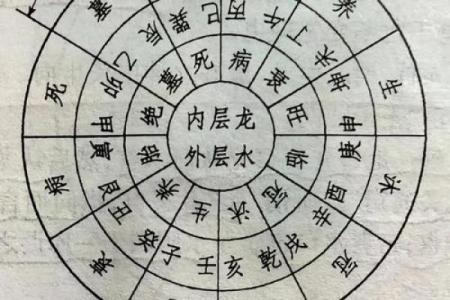 内层龙
外层水
死
病
衰
旺
临
冠
沐
生
养
胎
绝
墓
巽巳
丙午
丁未
坤申
庚酉
辛戌
乾亥
壬子
癸丑
艮寅
甲卯
乙辰
养
生
沐
冠
衰
病
死
墓